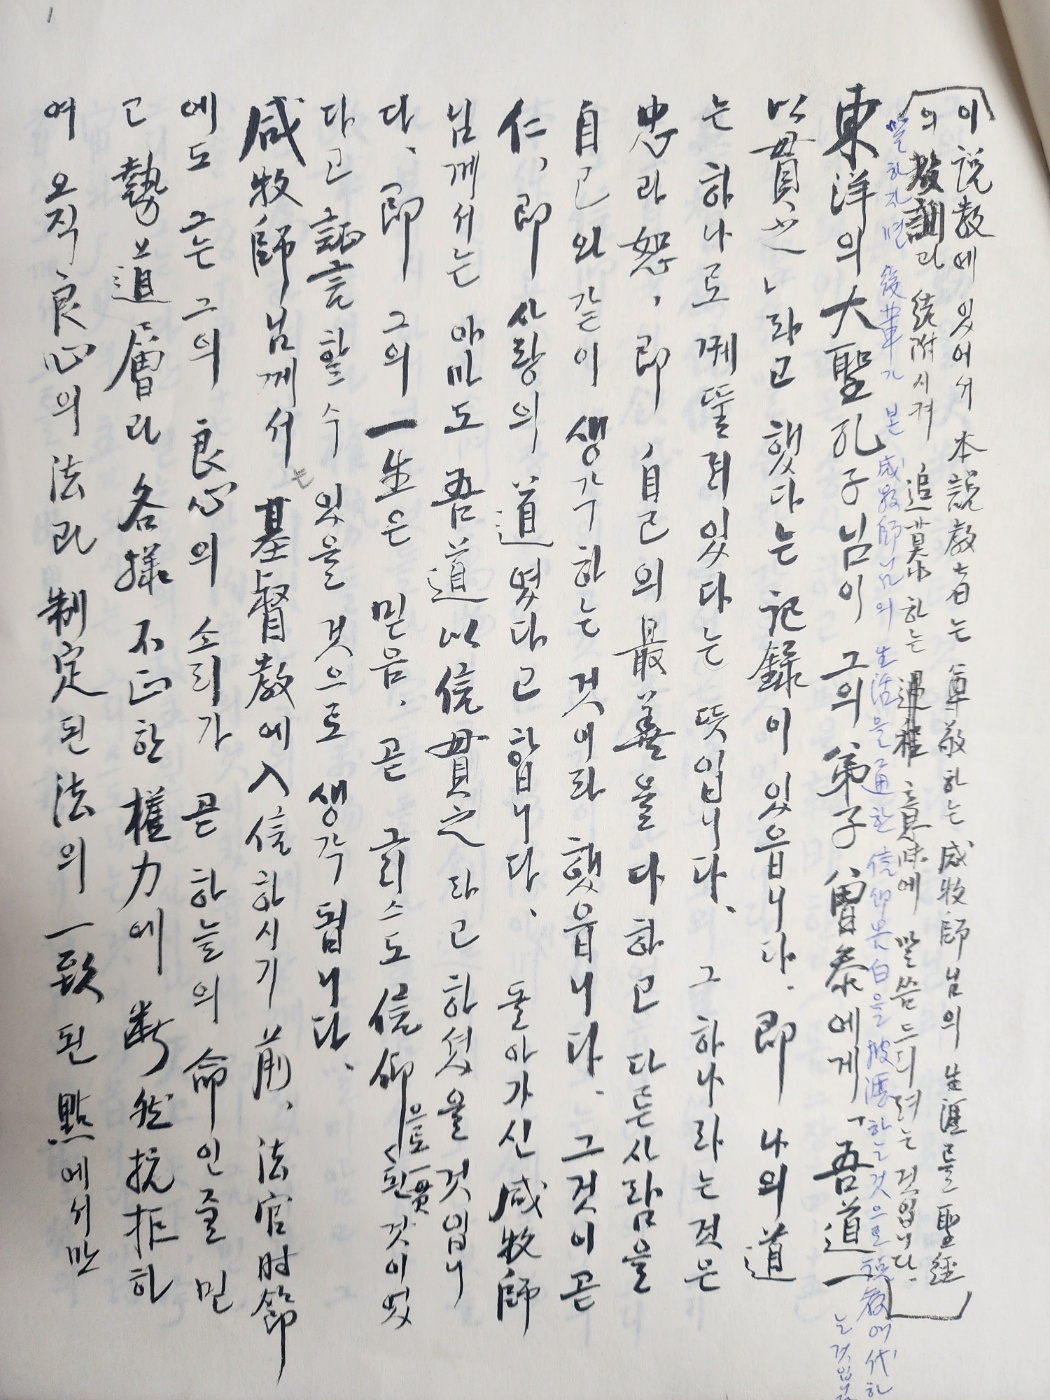 1
이 說敎에 있어서 本說敎者는 尊敬하는 咸牧師님의 生涯를 聖經
의 敎訓과 結附시켜 追慕하는 意味에 말씀드리려는 것입니다.
말하자면 後輩가 본 咸牧師님의 生活을 通한 信仰告白을 披瀝하는 것으로 說敎에 代하
는 것입니다
東洋의 大聖孔子님이 그의 弟子 曾參에게 「吾道一
以貫之」라고 했다는 記錄이 있읍니다. 即 나의 道
는 하나로 꿰뚤려 있다는 뜻입니다. 그 하나라는 것은
忠과 恕, 即 自己의 最善을 다하고 다른 사람을
自己와 같이 생각하는 것이라 했읍니다. 그것이 곧
仁, 即 사랑의 道였다고 합니다. 돌아가신 咸牧師
님께서는 아마도 吾道以信貫之라고 하셨을 것입니
다. 即 그의 一生은 믿음, 곧 그리스도 信仰으로 一貫된 것이었
다고 證言할 수 있을 것으로 생각됩니다.
咸牧師님께서 基督敎에 入信하시기 前, 法官時節
에도 그는 그의 良心의 소리가 곧 하늘의 命인줄 믿
고 勢道層과 各樣 不正한 權力에 斷然 抗拒하
여 오직 良心의 法과 制定된 法의 一致된 點에서만